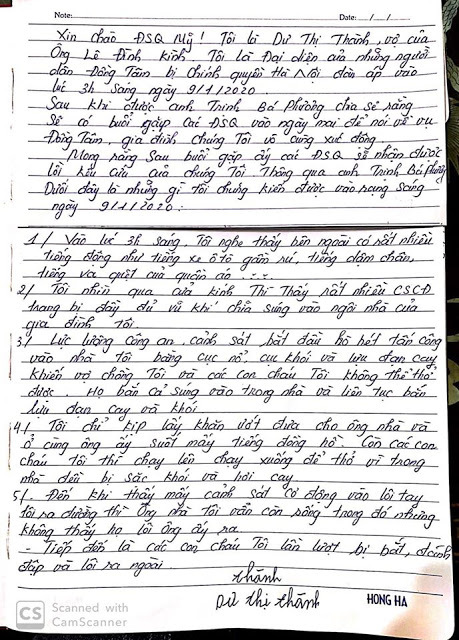 Note: Date: / /
Xin chào ĐSQ Mỹ! Tôi là Dư Thị Thành, vợ của
Ông Lê Đình Kình. Tôi là Đại diện của những người
dân Đồng Tâm bị chính quyền Hà Nội đàn áp vào
lúc 3h sáng ngày 9/1/2020.
Sau khi được anh Trịnh Bá Phương chia sẻ rằng
sẽ có buổi gặp các ĐSQ vào ngày mai để nói về vụ
Đồng Tâm, gia đình chúng Tôi vô cùng xúc động.
Mong rằng sau buổi gặp ấy các ĐSQ sẽ nhận được
lời kêu cứu của chúng Tôi Thông qua anh Trịnh Bá Phương
Dưới đây là những gì Tôi chứng kiến được vào rạng sáng
ngày 9/1/2020.
1/ Vào lúc 3h sáng, Tôi nghe thấy bên ngoài có rất nhiều
tiếng động như tiếng xe ô tô gầm rú, tiếng dậm chân,
tiếng va quệt của quần áo ....
2/ Tôi nhìn qua cửa kính Thì Thấy rất nhiều CSCĐ
trang bị đầy đủ vũ khí chĩa súng vào ngôi nhà của
gia đình Tôi
3/ Lực lượng Công an, cảnh sát bắt đầu hò hét tấn công
vào nhà Tôi bằng cục nổ, cục khói và lựu đạn cay
khiến vợ chồng Tôi và các con cháu Tôi không thể thở
được. Họ bắn cả súng vào trong nhà và liên tục bắn
lựu đạn cay và khói
4/ Tôi chỉ kịp lấy khăn ướt đưa cho ông nhà và
ở cùng ông ấy suốt mấy tiếng đồng hồ. Còn các con
cháu Tôi thì chạy lên chạy xuống để thở vì trong
nhà đều bị sặc khói và hơi cay.
5/ Đến khi thấy mấy cảnh sát cơ động vào lôi tay
tôi ra đường thì Ông nhà Tôi vẫn còn sống trong đó nhưng
không thấy họ lôi Ông ấy ra.
- Tiếp đến là các con cháu Tôi lần lượt bị bắt, đánh
đập và lôi ra ngoài.
Thành
Dư Thị Thành
HONG HA
CS Scanned with
CamScanner